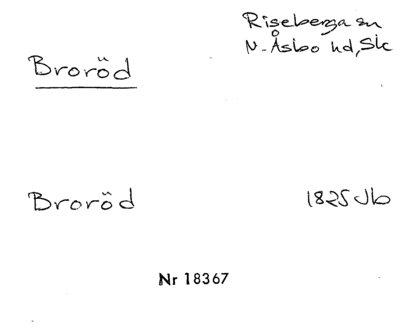 Riseberga sn
N. Åsbo hd, Sk
Broröd
Broröd 1825 Jb
Nr 18367